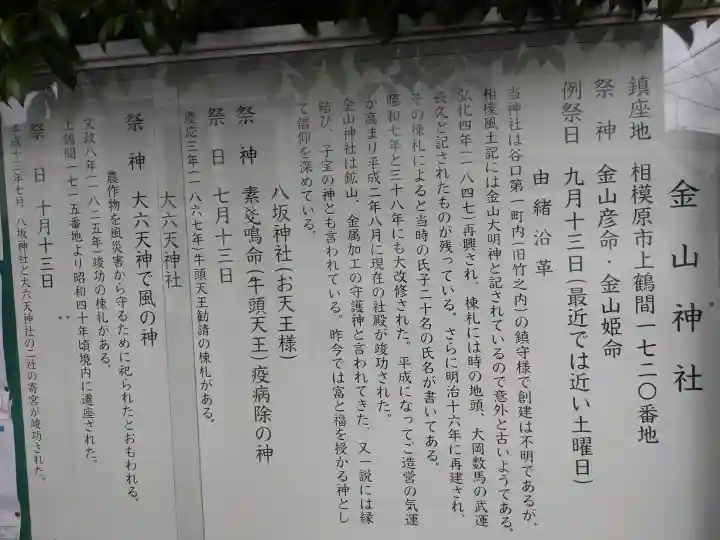 金山神社
鎮座地 相模原市上鶴間一七二〇番地
祭神 金山彦命・金山姫命
例祭日 九月十三日(最近では近い土曜日)
由緒沿革
当神社は谷口第一町内(旧竹之内)の鎮守様で創建は不明であるが、
相模風土記には金山大明神と記されているので意外と古いようである。
弘化四年(一八四七)再興され、棟札には時の地頭、大岡数馬の武運
長久と記されたものが残っている。さらに明治十六年に再建され、
その棟札によると当時の氏子二十名の氏名が書いてある。
昭和七年と三十八年にも大改修された。平成になってご造営の気運
が高まり平成二年八月に現在の社殿が竣功された。
金山神社は鉱山、金属加工の守護神と言われてきた、又一説には縁
結び、子宝の神とも言われている。昨今では富と福を授かる神とし
て信仰を深めている。
八坂神社(お天王様)
祭神 素戔鳴命(牛頭天王)疫病除の神
祭日 七月十三日
慶応三年(一八六七年)牛頭天王勧請の棟札がある。
大六天神社
祭神 大六天神で風の神
農作物を風災害から守るために祀られたとおもわれる。
文政八年(一八二五年)竣功の棟札がある。
上鶴間一七一五番地より昭和四十年頃境内に遷座された。
祭日 十月十三日
平成十三年七月 八坂神社と大六天神社の二社の寄宮が竣功された。